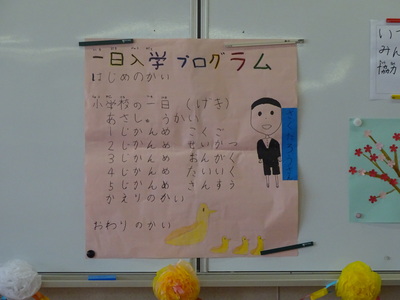 一日入学プログラム
はじめのかい
小学校の一日 (げき)
あさし。うかい
1じかんめ こくご
2じかんめ せいかつ
3じかんめ おんがく
4じかんめ たいいく
5じかんめ さんすう
かえりのかい
おわりのかい
いつ
みん
協